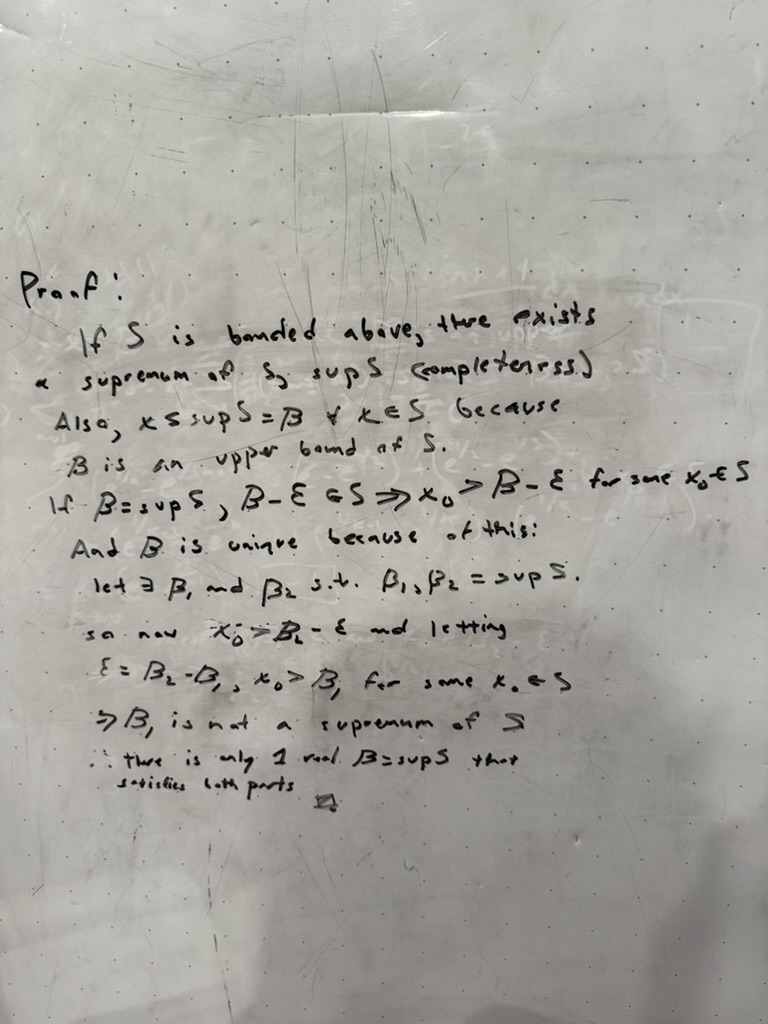 Proof:
If S is bounded above, there exists
a supremum of S, sup S (completeness)
Also, x ≤ sup S = β ∀ x ∈ S because
β is an upper bound of S.
If β = sup S, β - ε ∈ S ⇒ x₀ > β - ε for some x₀ ∈ S
And β is unique because of this:
let ∃ β₁ and β₂ s.t. β₁, β₂ = sup S.
so now x₀ > β₂ - ε and letting
ε = β₂ - β₁, x₀ > β₁ for some x₀ ∈ S
⇒ β₁ is not a supremum of S
∴ there is only 1 real β = sup S that
satisfies both parts